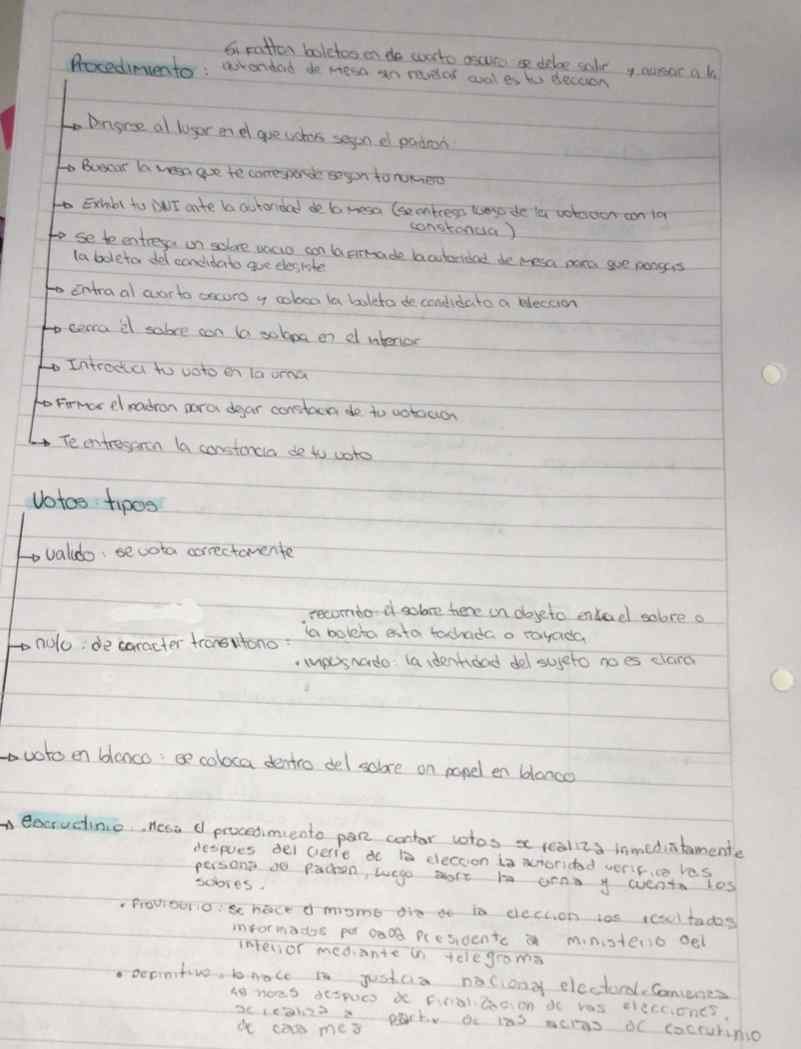 Si faltan boletas en de cuarto oscuro se debe salir y avisar a la
Procedimiento: autoridad de mesa sin revelar cual es tu eleccion
Dirigirse al lugar en el que votas segun el padron
Buscar la mesa que te corresponde segun tu numero
Exhibi tu DNI ante la autoridad de la mesa (se entrega luego de la votacion con la
constancia)
se te entrega un sobre vacio con la firma de la autoridad de mesa para que pongas
la boleta del candidato que elegiste
Entra al cuarto oscuro y coloca la boleta de candidato a eleccion
cerra el sobre con la solapa en el interior
Introduci tu voto en la urna
Firmar el padron para dejar constacia de tu votacion
Te entregaran la constancia de tu voto
Votos: tipos
valido: se vota correctamente
.recurrido: el sobre tiene un objeto en el sobre o
la boleta esta tachada o rayada
nulo: de caracter transitorio:
.impugnado: la identidad del sujeto no es clara
voto en blanco: se coloca dentro del sobre un papel en blanco
escructinio .Mesa el procedimiento para contar votos se realiza inmediatamente
despues del cierre de la eleccion la autoridad verifica las
persona del padron, luego abre la urna y cuenta los
sobres.
• Provisorio: se hace el mismo dia de la eleccion los resultados
informados por cada Presidente a ministerio del
interior mediante un telegrama
• Definitivo: lo hace la justicia nacional electoral. Comienza
48 horas despues de finalizacion de las elecciones.
se realiza a partir de las actas de escrutinio
de cada mesa